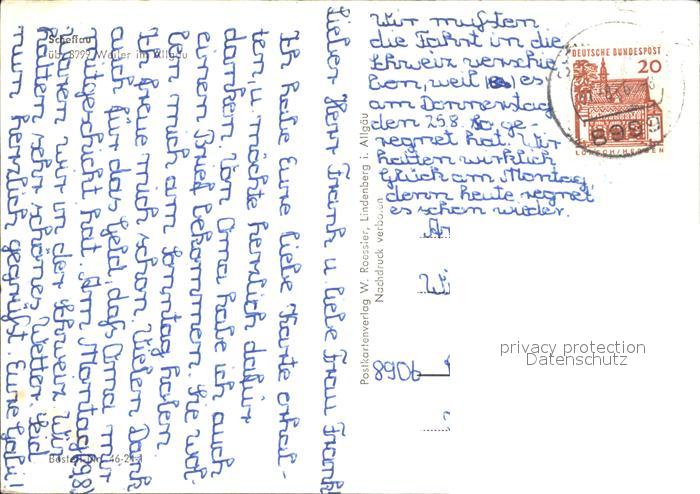 Lieber Herr Frank u. liebe Frau Frank
Ich habe Eure liebe Karte erhal-
ten, u. möchte herzlich dafür
danken. Von Oma habe ich auch
einen Brief bekommen. Sie wol-
len mich am Sonntag holen
Ich freue mich schon. Vielen Dank
auch für das Geld, daß Oma mir
mitgeschickt hat. Am Montag
waren wir in der Schweiz. Wir
hatten sehr schönes Wetter. Seid
nun herzlich gegrüßt. Eure Gabi!
Wir mußten
die Fahrt in die
Schweiz verschie
ben, weil es
am Donnerstag
den 25.8. so ge-
regnet hat. Wir
hatten wirklich
Glück am Montag,
denn heute regnet
es schon wieder.
Scheffau
üb. 8999 Weiler im Allgäu
Best.-Nr. 46-24-1
Postkartenverlag W. Roessler, Lindenberg i. Allgäu
Nachdruck verboten
DEUTSCHE BUNDESPOST
20
LORSCH/HESSEN
8906
privacy protection
Datenschutz